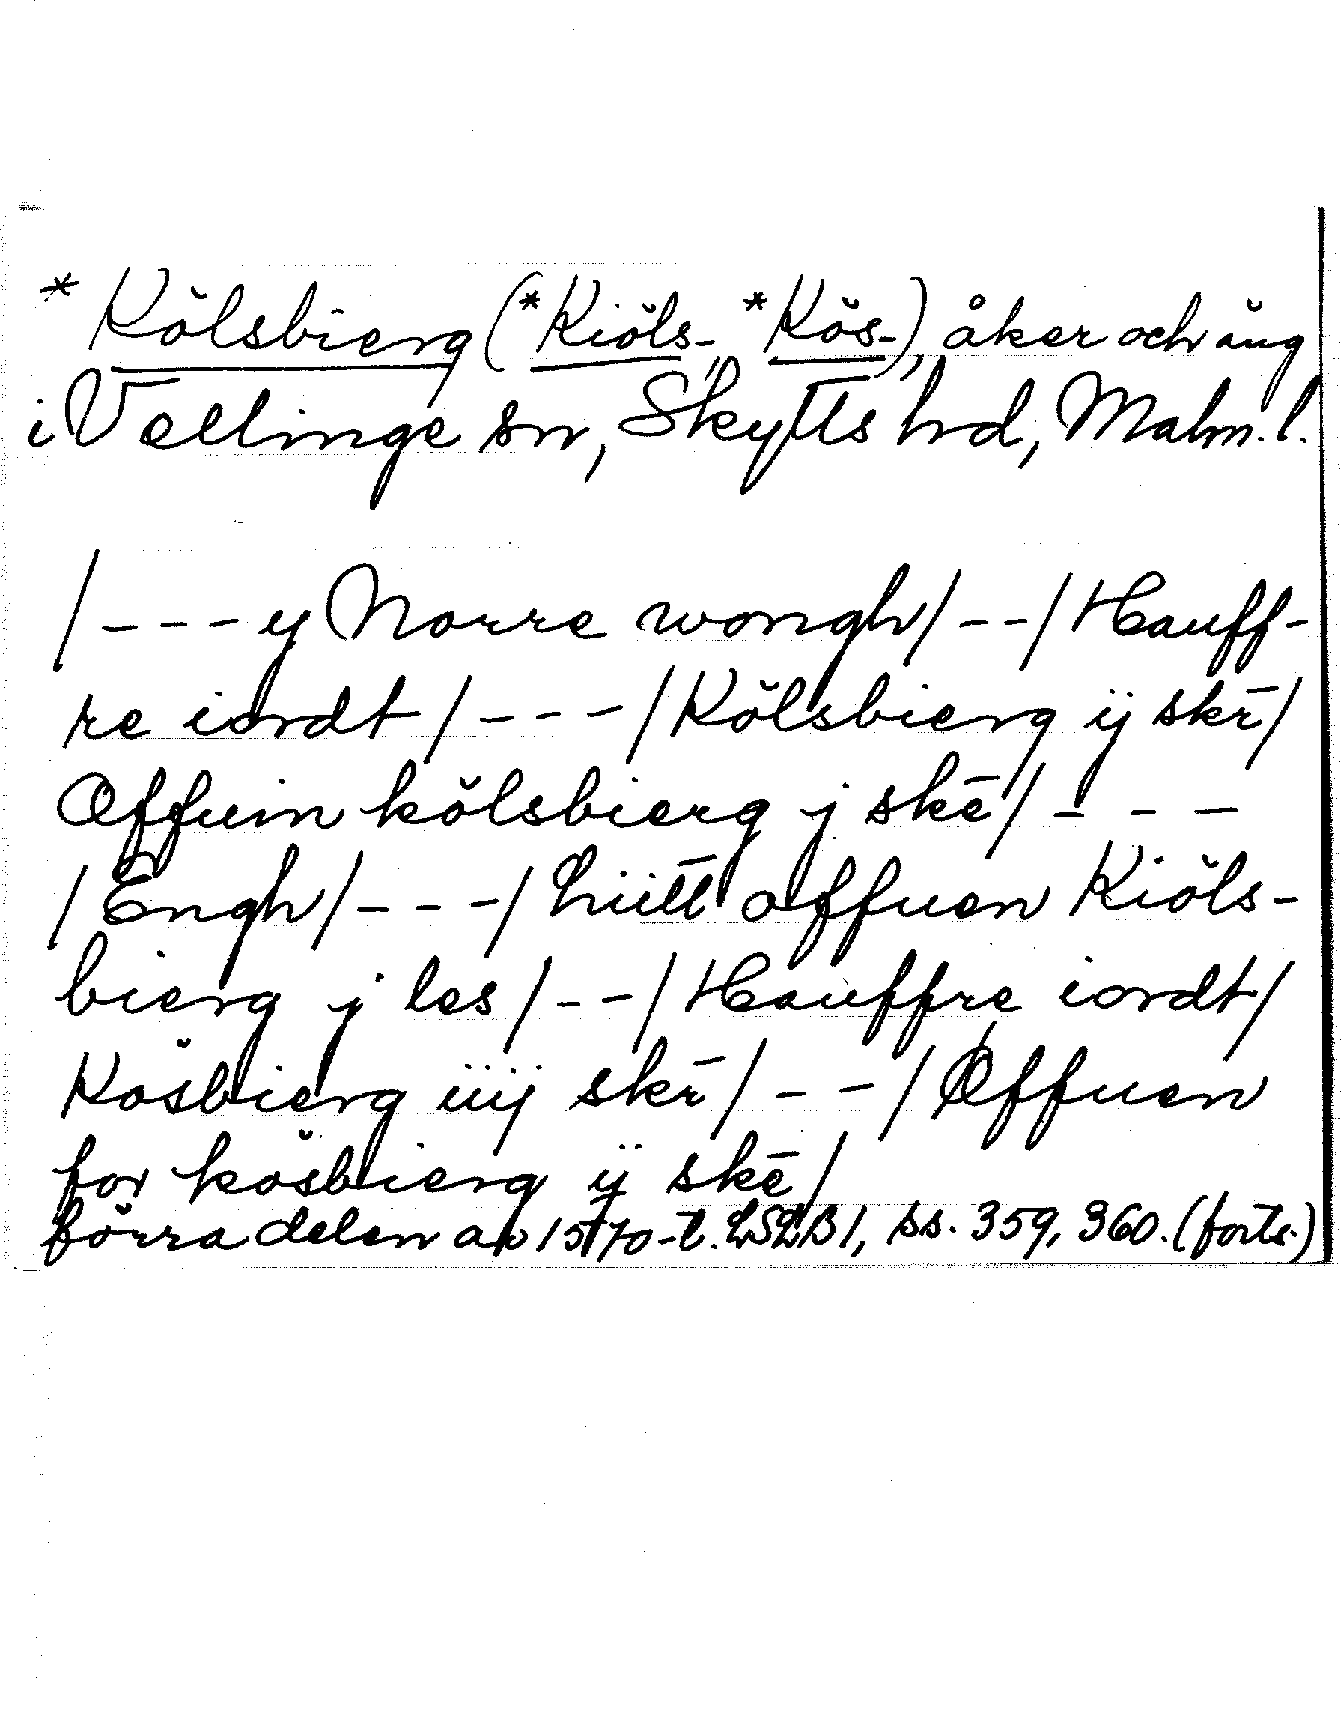 * Kölsbierg (*Kiöls-, *Kös-), åker och äng
i Vellinge sn, Skytts hd, Malm. l.
/--- y Norre wongh/--/Hauff-
re iordt/---/Kölsbierg ij skr̄/
Offuin kölsbierg j skē/---
/Engh/---/hiitt offuen Kiöls-
bierg j les/--/Hauffre iordt/
Kösbierg iiij skr̄/--/Offuen
for kösbierg ij skē/
förra delen av 1570-t. LSLB 1, ss. 359, 360. (forts.)